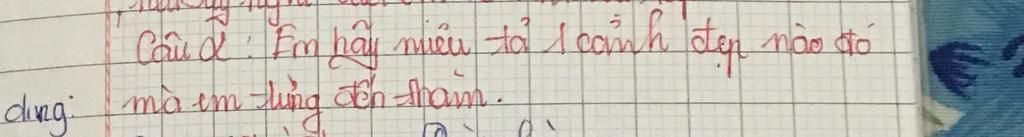 Câu 2: Em hãy miêu tả 1 cảnh đẹp nào đó
dung: mà em từng đến thăm.